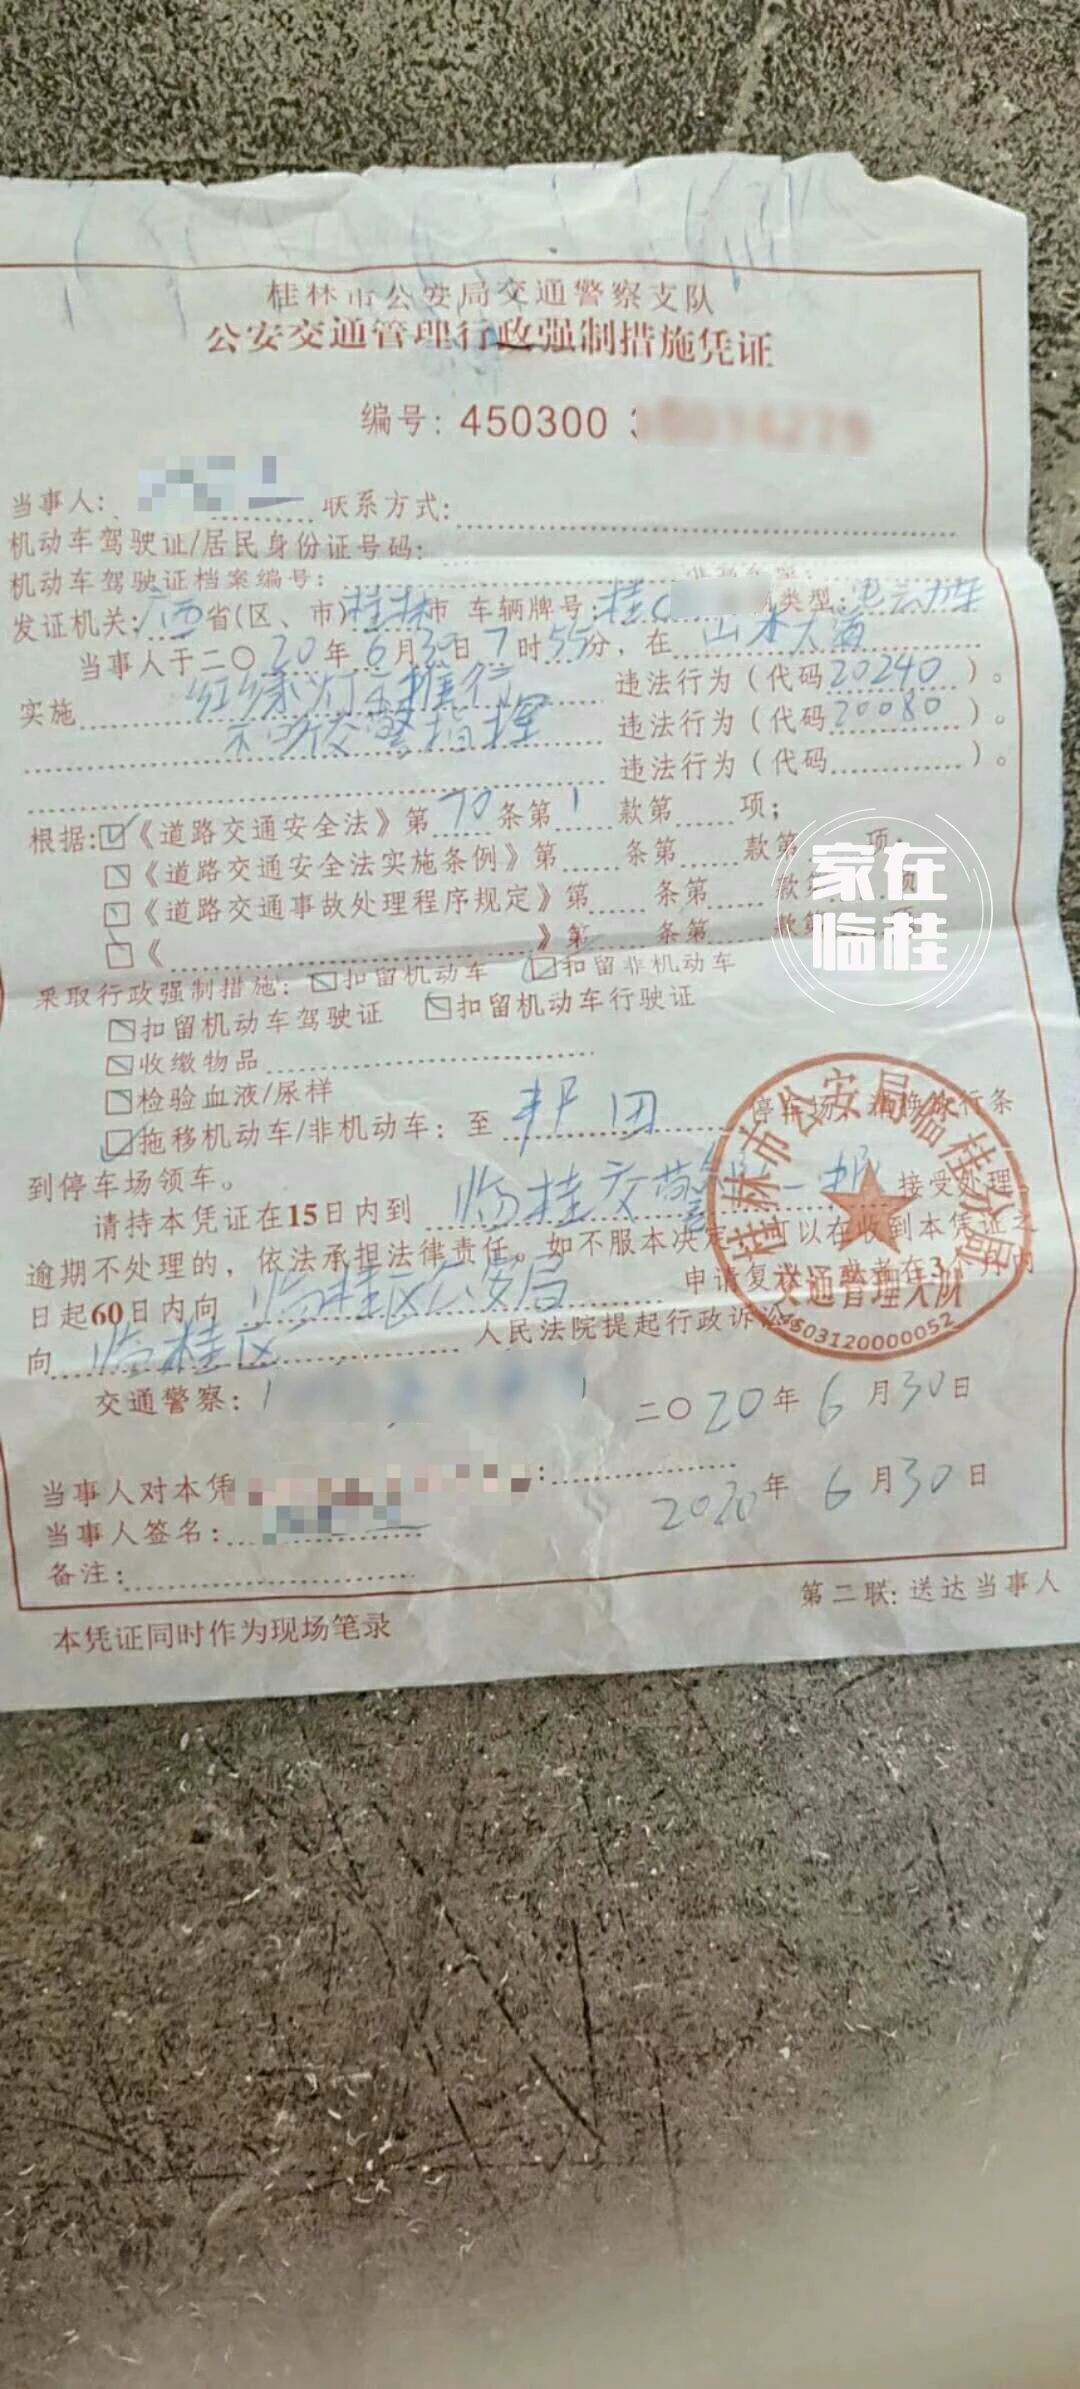 桂林市公安局交通警察支队
公安交通管理行政强制措施凭证
编号：450300
当事人：联系方式：
机动车驾驶证/居民身份证号码：
机动车驾驶证档案编号：
发证机关：广西省(区、市)桂林市 车辆牌号：桂C 类型：
当事人于二〇20年6月30日7时55分，在山水大道
实施 红绿灯 违法行为（代码20240）。
不听交警指挥 违法行为（代码20080）。
违法行为（代码）。
根据：《道路交通安全法》第70条第1款第 项；
《道路交通安全法实施条例》第 条第 款第 项；
《道路交通事故处理程序规定》第 条第 款第 项
《 》第 条第 款第 项
采取行政强制措施：扣留机动车 扣留非机动车
扣留机动车驾驶证 扣留机动车行驶证
收缴物品
检验血液/尿样
拖移机动车/非机动车：至 邦田 停车场，放行条
到停车场领车。
请持本凭证在15日内到 临桂交警 接受处理。
逾期不处理的，依法承担法律责任。如不服本决定，可以在收到本凭证之
日起60日内向 临桂区公安局 申请复议，或者在3个月内
向 临桂区 人民法院提起行政诉讼
交通警察： 二〇20年6月30日
当事人对本凭
2020年6月30日
当事人签名：
备注：
第二联：送达当事人
本凭证同时作为现场笔录
桂林市公安局临桂分局
交通管理大队
4503120000052
家在
临桂